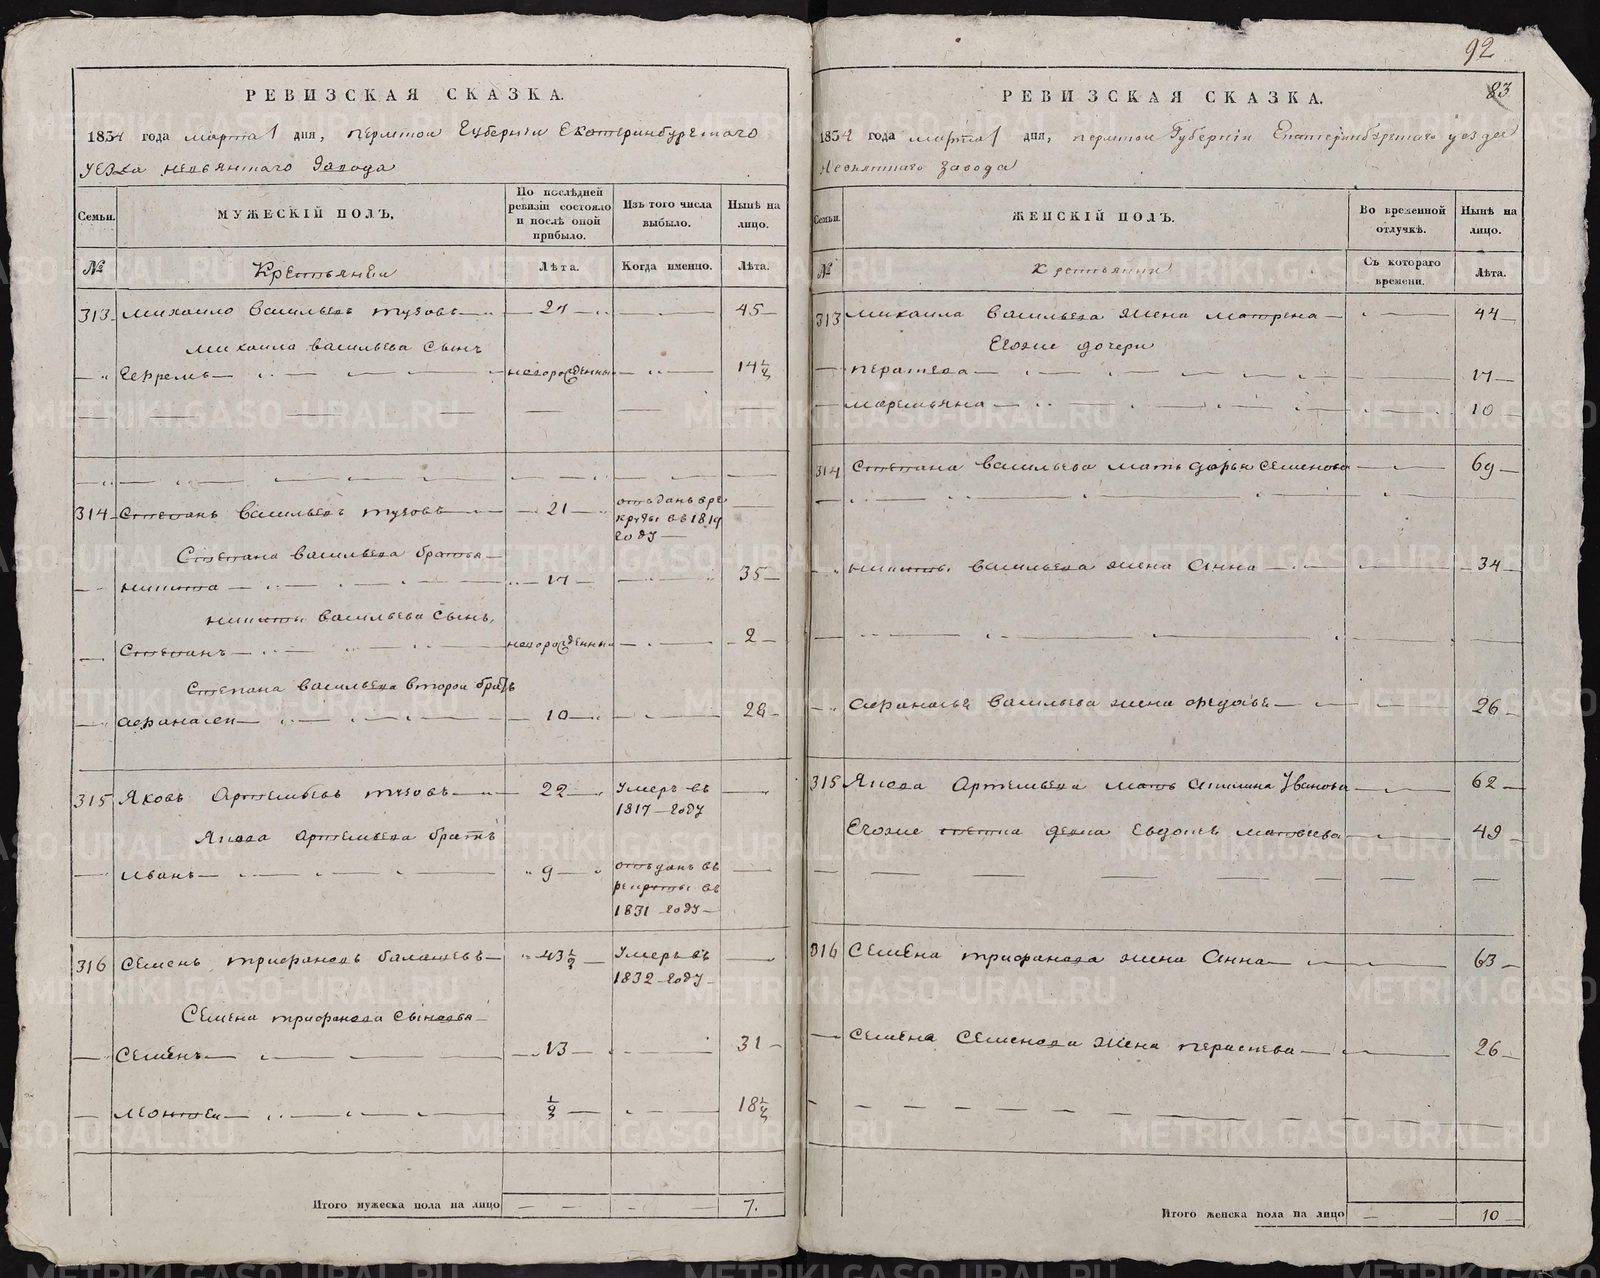 92
РЕВИЗСКАЯ СКАЗКА.
1834 года марта 1 дня, пермской Губернии Екатеринбургского
уезда невьянского Завода
Семьи. МУЖЕСКІЙ ПОЛЪ. По послѣдней ревизіи состояло и послѣ оной прибыло. Изъ того числа выбыло. Нынѣ на лицо.
№ Крестьянеи Лѣта. Когда именно. Лѣта.
313 михайло васильевъ тузовъ 27 45
михаила васильева сынъ
Ефремъ неворожденный 14 1/2
314 Степанъ васильевъ тузовъ 21 отъданъ вре
круты въ 1819
году
Степана васильева братья
никита 17 35
никиты васильева сынъ,
Степанъ неворожденны 2
Степана васильева второй братъ
афанасеи 10 28
315 Яковъ Артемьевъ тузовъ 22 умеръ въ
1817 году
Якова артемьева братъ
иванъ 9 отъданъ въ
рекруты въ
1831 году
316 семенъ трифановъ балашевъ 43 1/2 умеръ въ
1832 году
Семена трифанова сыновья
Семенъ 13 31
Моисеи 1/2 18 1/2
Итого мужеска пола на лицо 7.
83
РЕВИЗСКАЯ СКАЗКА.
1834 года марта 1 дня, пермской Губерніи Екатеринбургскаго уезда
Невьянскаго завода
Семьи. ЖЕНСКІЙ ПОЛЪ. Во временной отлучкѣ. Нынѣ на лицо.
№ Крестьянки Съ котораго времени. Лѣта.
313 Михаила васильева жена матрена 44
Егоже дочери
параскева 17
маремьяна 10
314 Степана васильева мать дарья семенова 69
никиты васильева жена анна 34
афанасья васильева жена федосья 26
315 Якова Артемьева мать Акилина Иванова 62
Егоже тетка девка евдокъя матвеева 49
316 Семена трифанова жена Анна 63
Семена Семенова жена параскева 26
Итого женска пола на лицо 10
METRIKI.GASO-URAL.RU